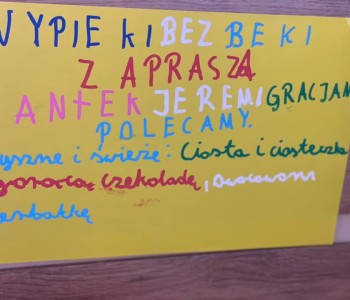 WYPIEKI BEZ BEKI
ZAPRASZA
ANTEK JEREMI GRACJAN
POLECAMY:
yszne i świeże: Ciasta i ciasteczka
gorącą czekoladę, Owocową
erbatkę